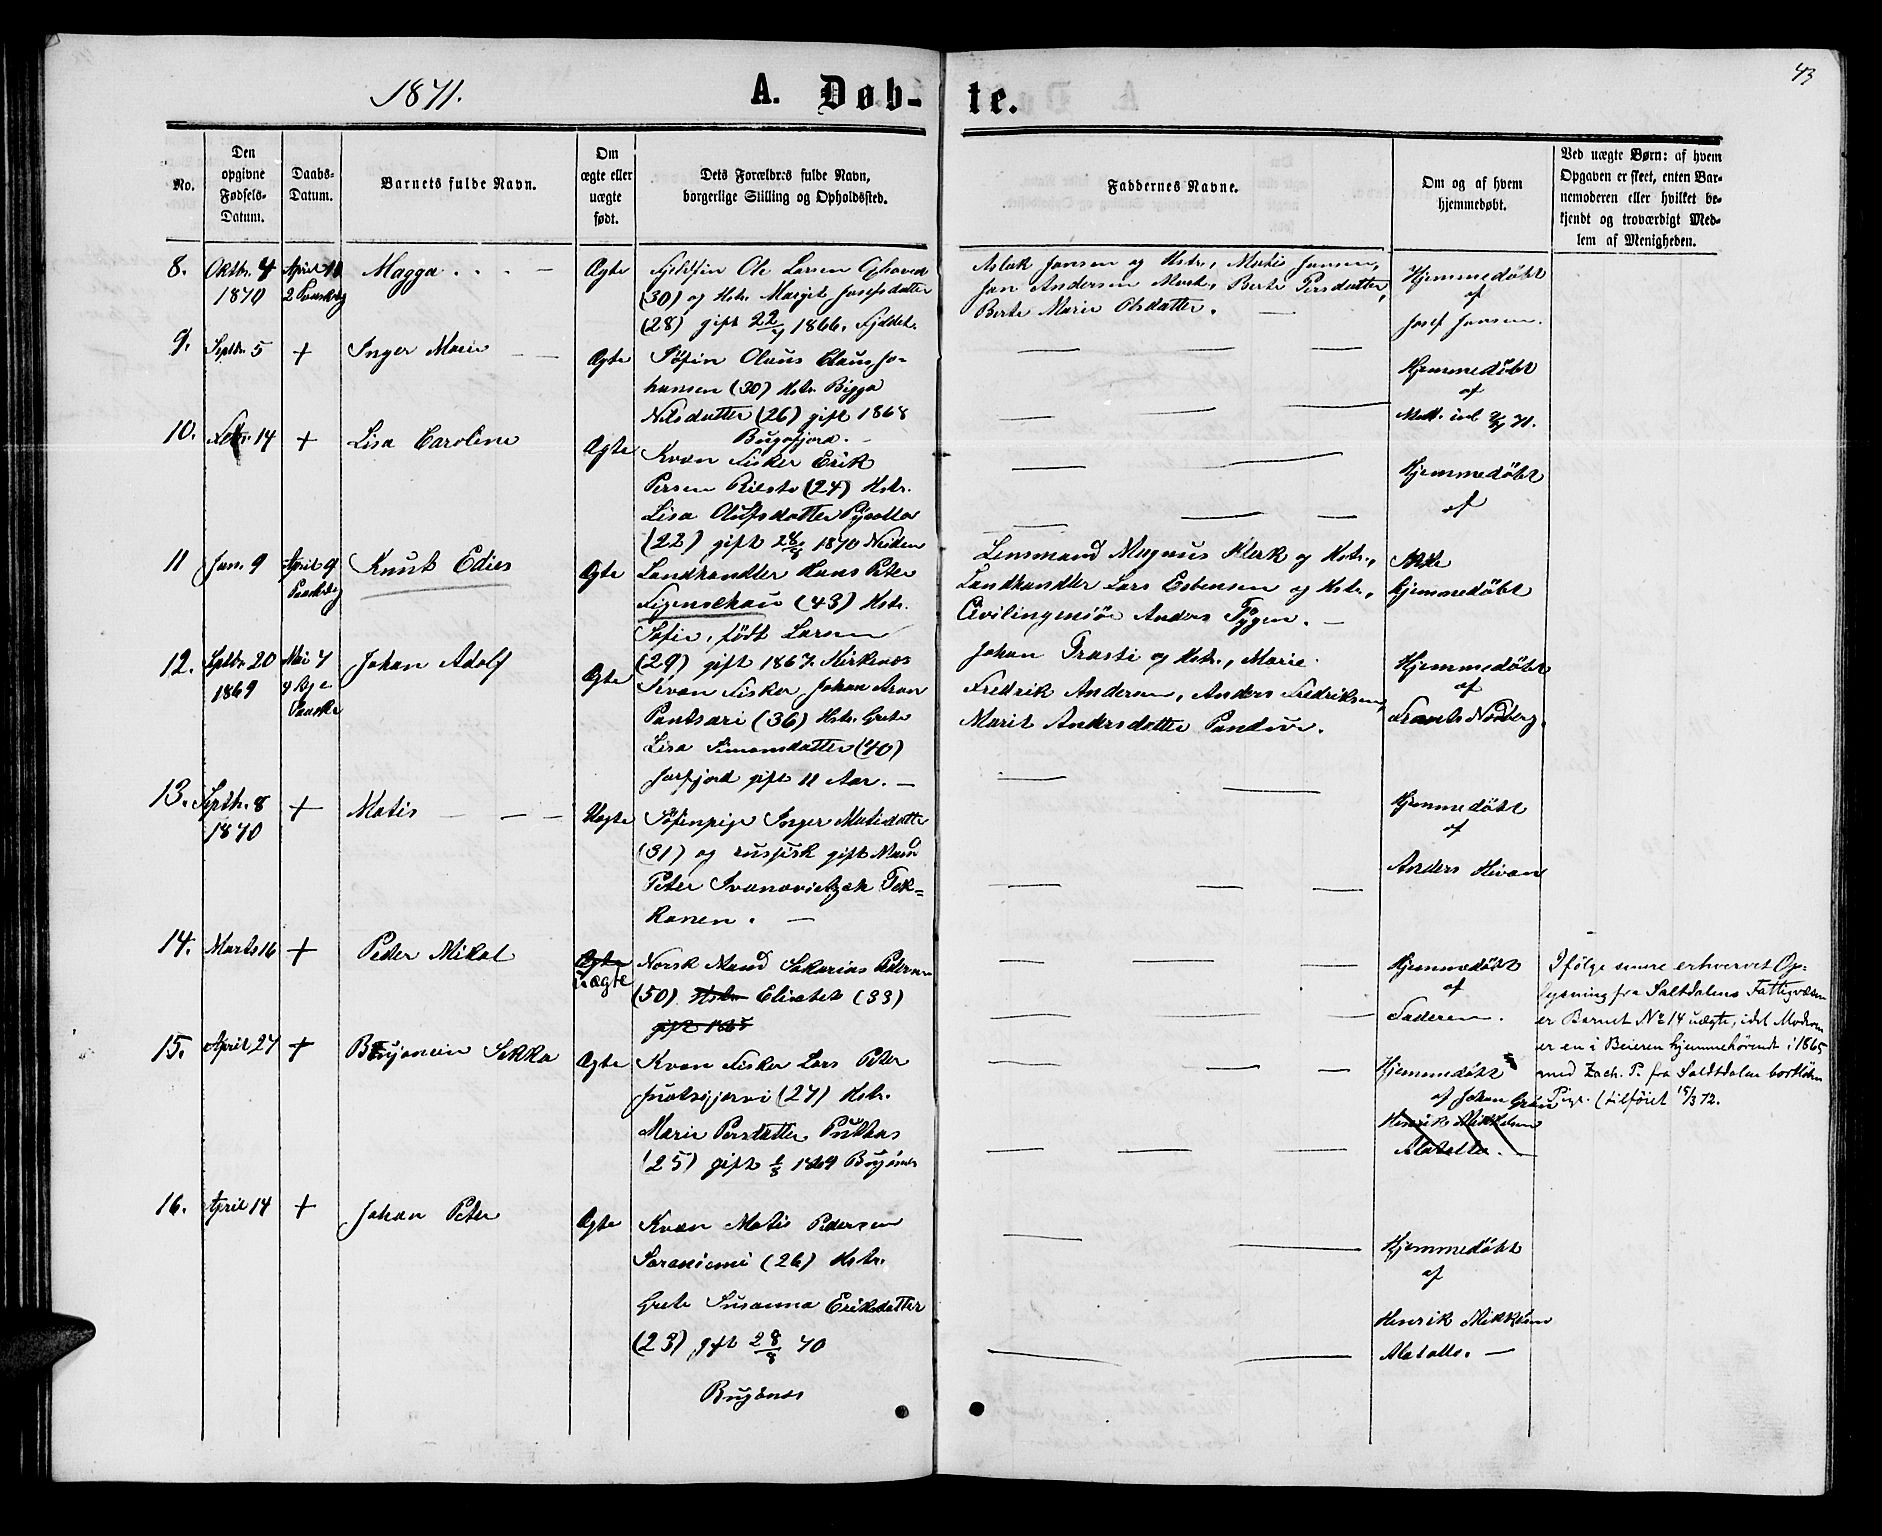 43
1871.
A. Døb-
te.
No.
Den opgivne Fødsels-Datum.
Daabs-Datum.
Barnets fulde Navn.
Om ægte eller uægte født.
Dets Forældres fulde Navn,
borgerlige Stilling og Opholdssted.
Faddernes Navne.
Om og af hvem
hjemmedøbt.
Ved uægte Børn: af hvem
Opgaven er skeet, enten Bar-
nemoderen eller hvilket be-
kjendt og troværdigt Med-
lem af Menigheden.
8. Oktbr. 4 1870
April 10
Magga
Ægte
Fjeldfin Ole Larsen
(30) og Hstr. Margit Josefsdatter
(28) gift 1866.
Aslak Jonsen og Hstr., Matis Jonsen,
Jon Andersen Mart., Berte Persdatter,
Berte Marie Olsdatter.
Hjemmedøbt
af
Josef Jonsen.
9. Septbr. 5
+
Inger Marie
Ægte
Søfin Olaus Claus Jo-
hansen (30) Hstr. Bigga
Nilsdatter (26) gift 1868
Bugøfjord.
Hjemmedøbt
af
10. 14
+
Lisa Caroline
Ægte
Kvæn Fisker Erik
Persen Riesto (24) Hstr.
Lisa Olufsdatter
(22) gift 28/8 1870 Neiden
Hjemmedøbt
af
11 Jan. 9
April 9
Knut Edies
Ægte
Landhandler Hans Peter
Figenschau (43) Hstr.
Sofie, født Larsen
(29) gift 1867. Kirkenæs
Lensmand Magnus Klerk og Hstr.,
Landhandler Lars Esbensen og Hstr.,
Civilingeniør Anders Fygen.
Ikke
hjemmedøbt
12. Septbr. 20 1869
Mai 7
Johan Adolf
Ægte
Kvæn Fisker Johan Aron
Pantsari (36) Hstr. Grete
Lisa Simonsdatter (40)
Jarfjord gift 11 Aar.
Johan Trasti og Hstr., Marie
Fredrik Andersen, Anders Fredriksen,
Marit Andersdatter
Hjemmedøbt
af
13. Septbr. 8 1870
+
Matis
Uægte
Søfinpige Inger Matisdatter
(31) og russisk gift Mand
Peter Ivanovietzch Tek-
kanen.
Hjemmedøbt
af
Anders
14. Marts 16
+
Peder Mikal
Ægte
Uægte
Norsk Mand Sakarias Pedersen
(50) Hstr. Elisabet (33)
gift 1865
Hjemmedøbt
af
Faderen.
Ifølge senere erhvervet Op-
lysning fra Saltdalens Fattigvæsen
er Barnet No 14 uægte, idet Moderen
er en i Beieren hjemmehørende i 1865
med Zach. P. fra Saltdalen bortløben
Pige. (tilføiet 15/3 72.
15. April 27
+
Benjamin Sekka
Ægte
Kvæn Fisker Lars Peter
(27) Hstr.
Marie Persdatter
(25) gift 1869 Bugønes
Hjemmedøbt
af Johan Grøn
Henrik Mikkelsen
Alatalle.
16. April 14
+
Johan Peter
Ægte
Kvæn Matis Pedersen
Saraniemi (26) Hstr.
Grete Susanna Eriksdatter
(23) gift 28/8 70
Bugønes
Hjemmedøbt
af
Henrik Mikkelsen
Alatalle.